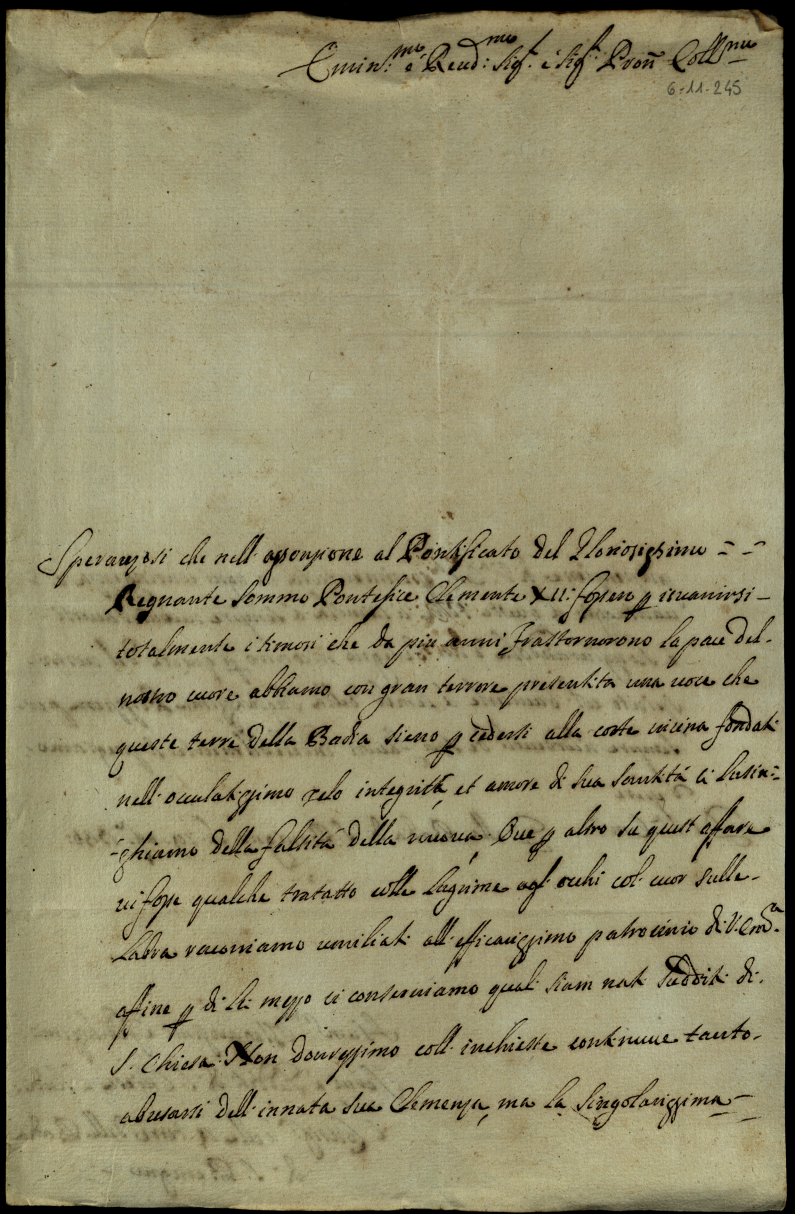 Emin:mo e Reud:mo Sig:r e Sig:r Pron Coll:mo
6-11-245
Speranzosi che nell'assonzione al Pontificato del Gloriosissimo = =
Regnante Sommo Pontefice Clemente XII: fossero p isuanirsi -
totalmente i timori che da più anni frastornorono la pace del-
nostro cuore abbiamo con gran terrore presentita una uoce che
queste terre della Badia sieno p cedersi alla corte uicina fondati
nell'occulatissimo zelo integrità, et amore di sua Santità ci lusin=
=ghiamo della falsità della nuoua. Oue p altro su quest'affare
ui fosse qualche trattato colle lagrime agl'occhi col cuor sulle-
Labra ricorriamo umiliati all'efficacissimo patrocinio di V. Em:a
affine p di Lei mezzo ci conseruiamo quali siam nati Sudditi di-
S. Chiesa. Non douressimo coll'inchieste continue tanto-
abusarsi dell'innata sua Clemenza, ma la singolarissima =